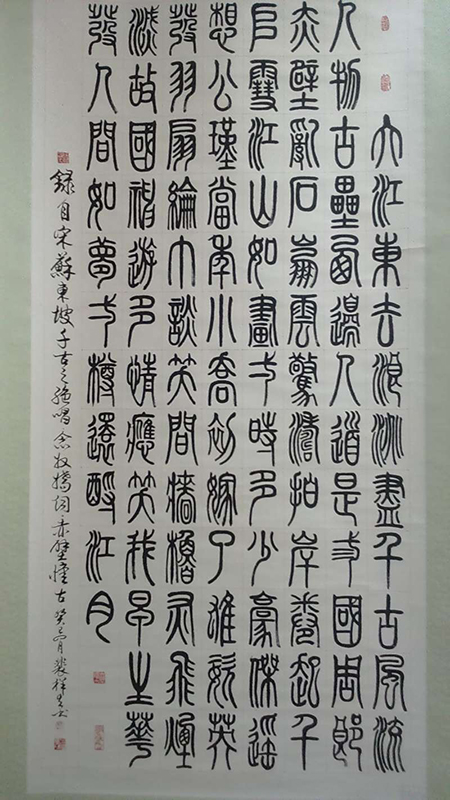 大江東去浪淘盡千古風流
人物古壘西邊人道是弎國周郎
赤壁亂石崩雲驚濤拍岸捲起千
𠂤雪江山如畫弌時多少豪傑遙
想公瑾當年小喬初嫁了雄姿英
發羽扇綸巾談笑間檣櫓灰飛煙
滅故國神遊多情應笑我早生華
發人間如夢弌樽還酹江月
錄自宋蘇東坡千古之絕唱念奴嬌詞赤壁懷古